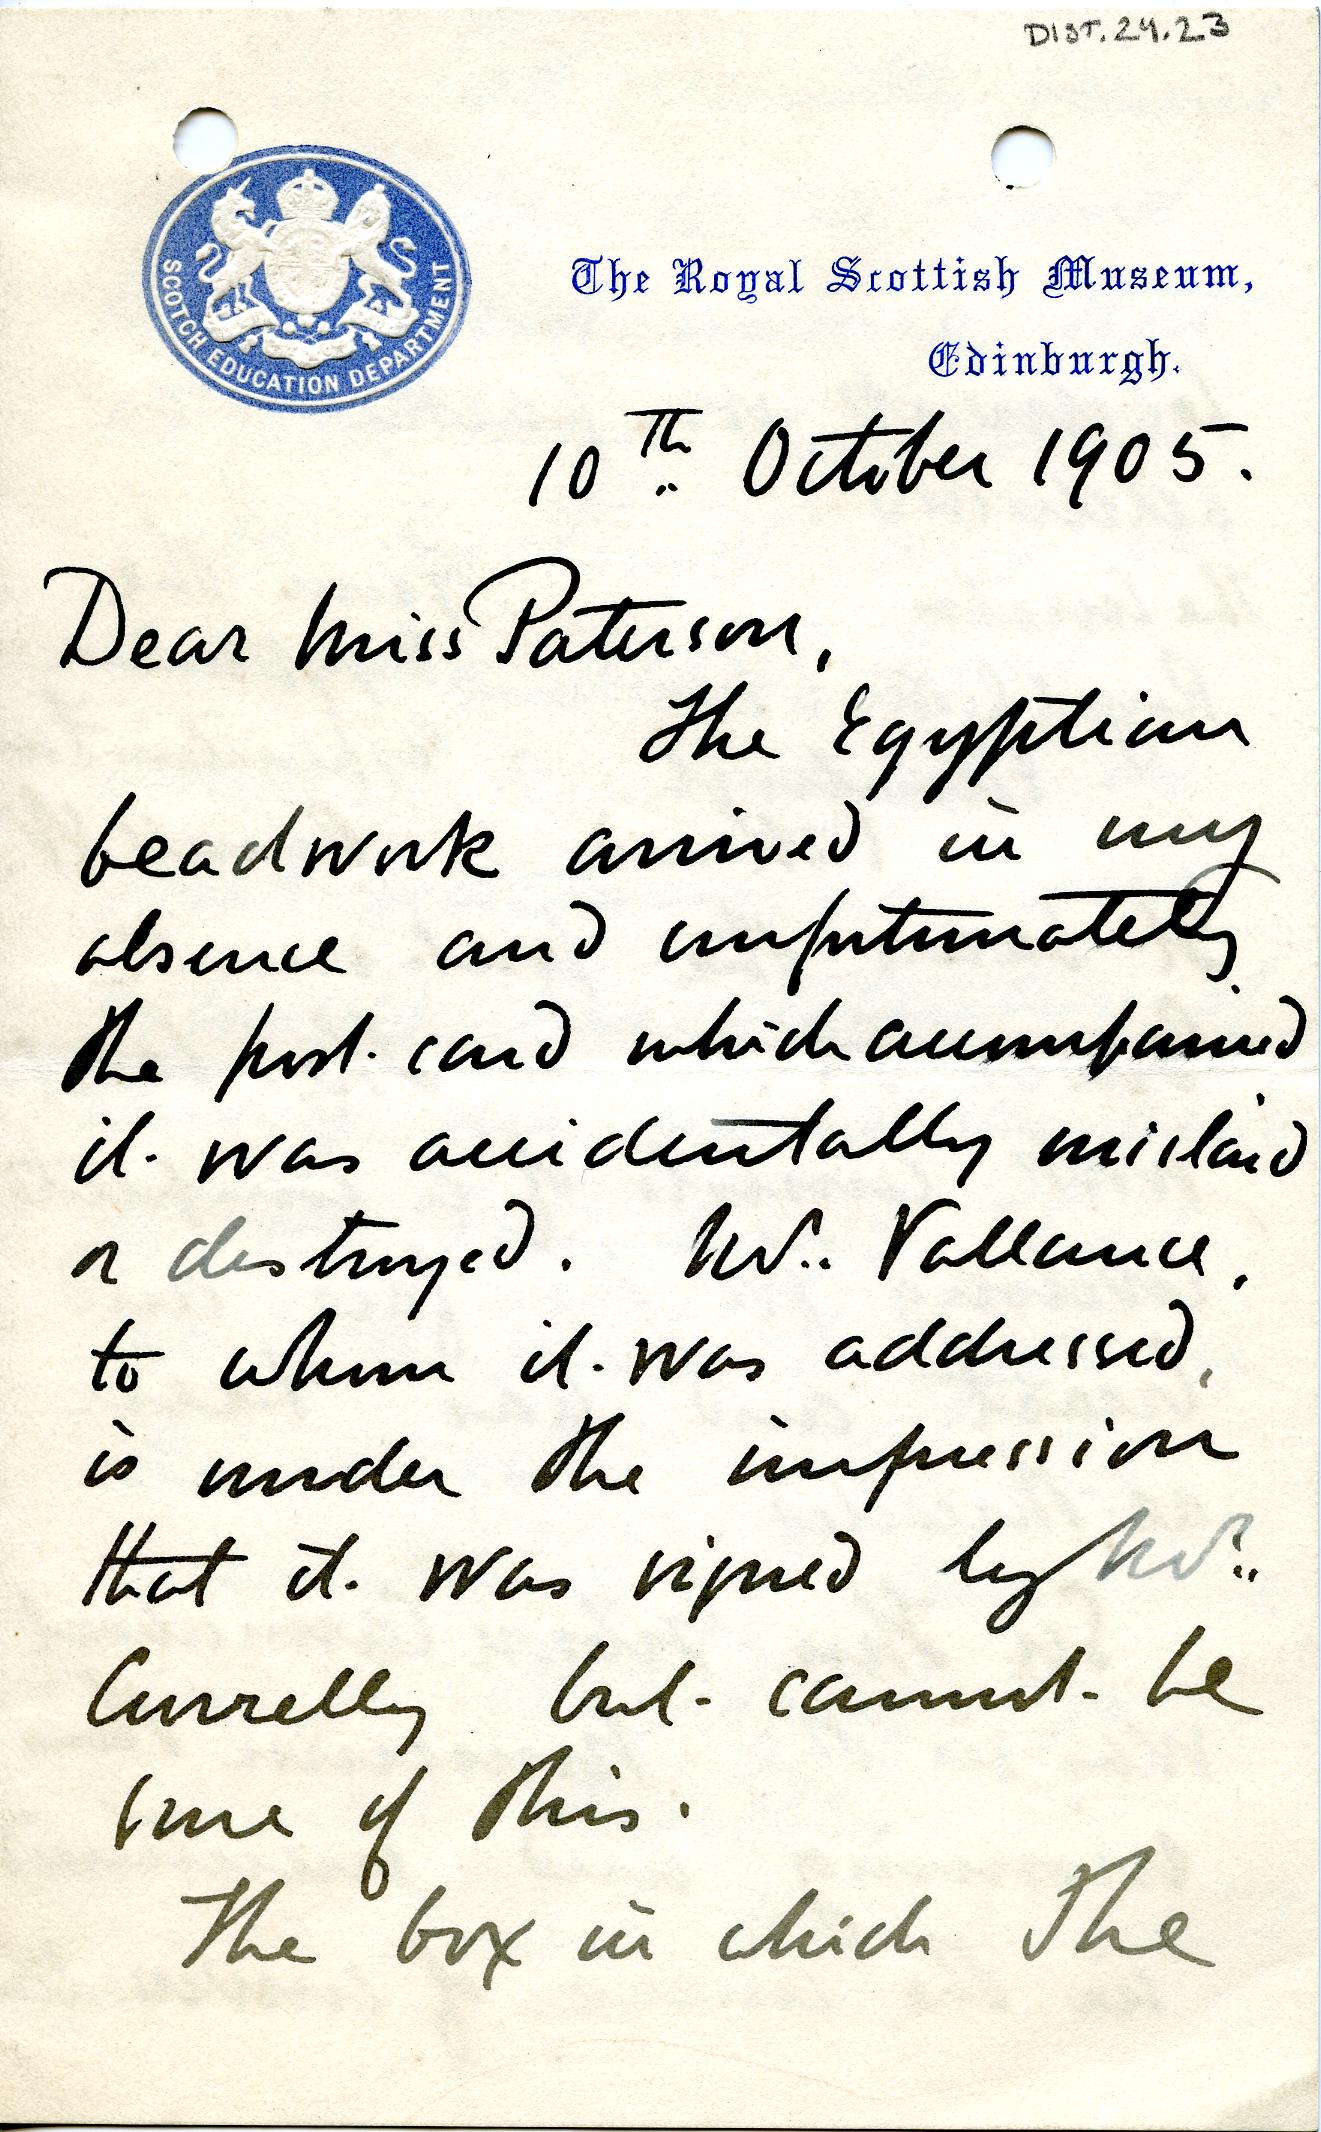 DIST.24.23
SCOTCH EDUCATION DEPARTMENT
The Royal Scottish Museum,
Edinburgh.
10th October 1905.
Dear Miss Paterson,
The Egyptian
beadwork arrived in my
absence and unfortunately
the post-card which accompanied
it was accidentally mislaid
or destroyed. Mr. Vallance,
to whom it was addressed,
is under the impression
that it was signed by Mr.
Currelly but cannot be
sure of this.
The box in which the